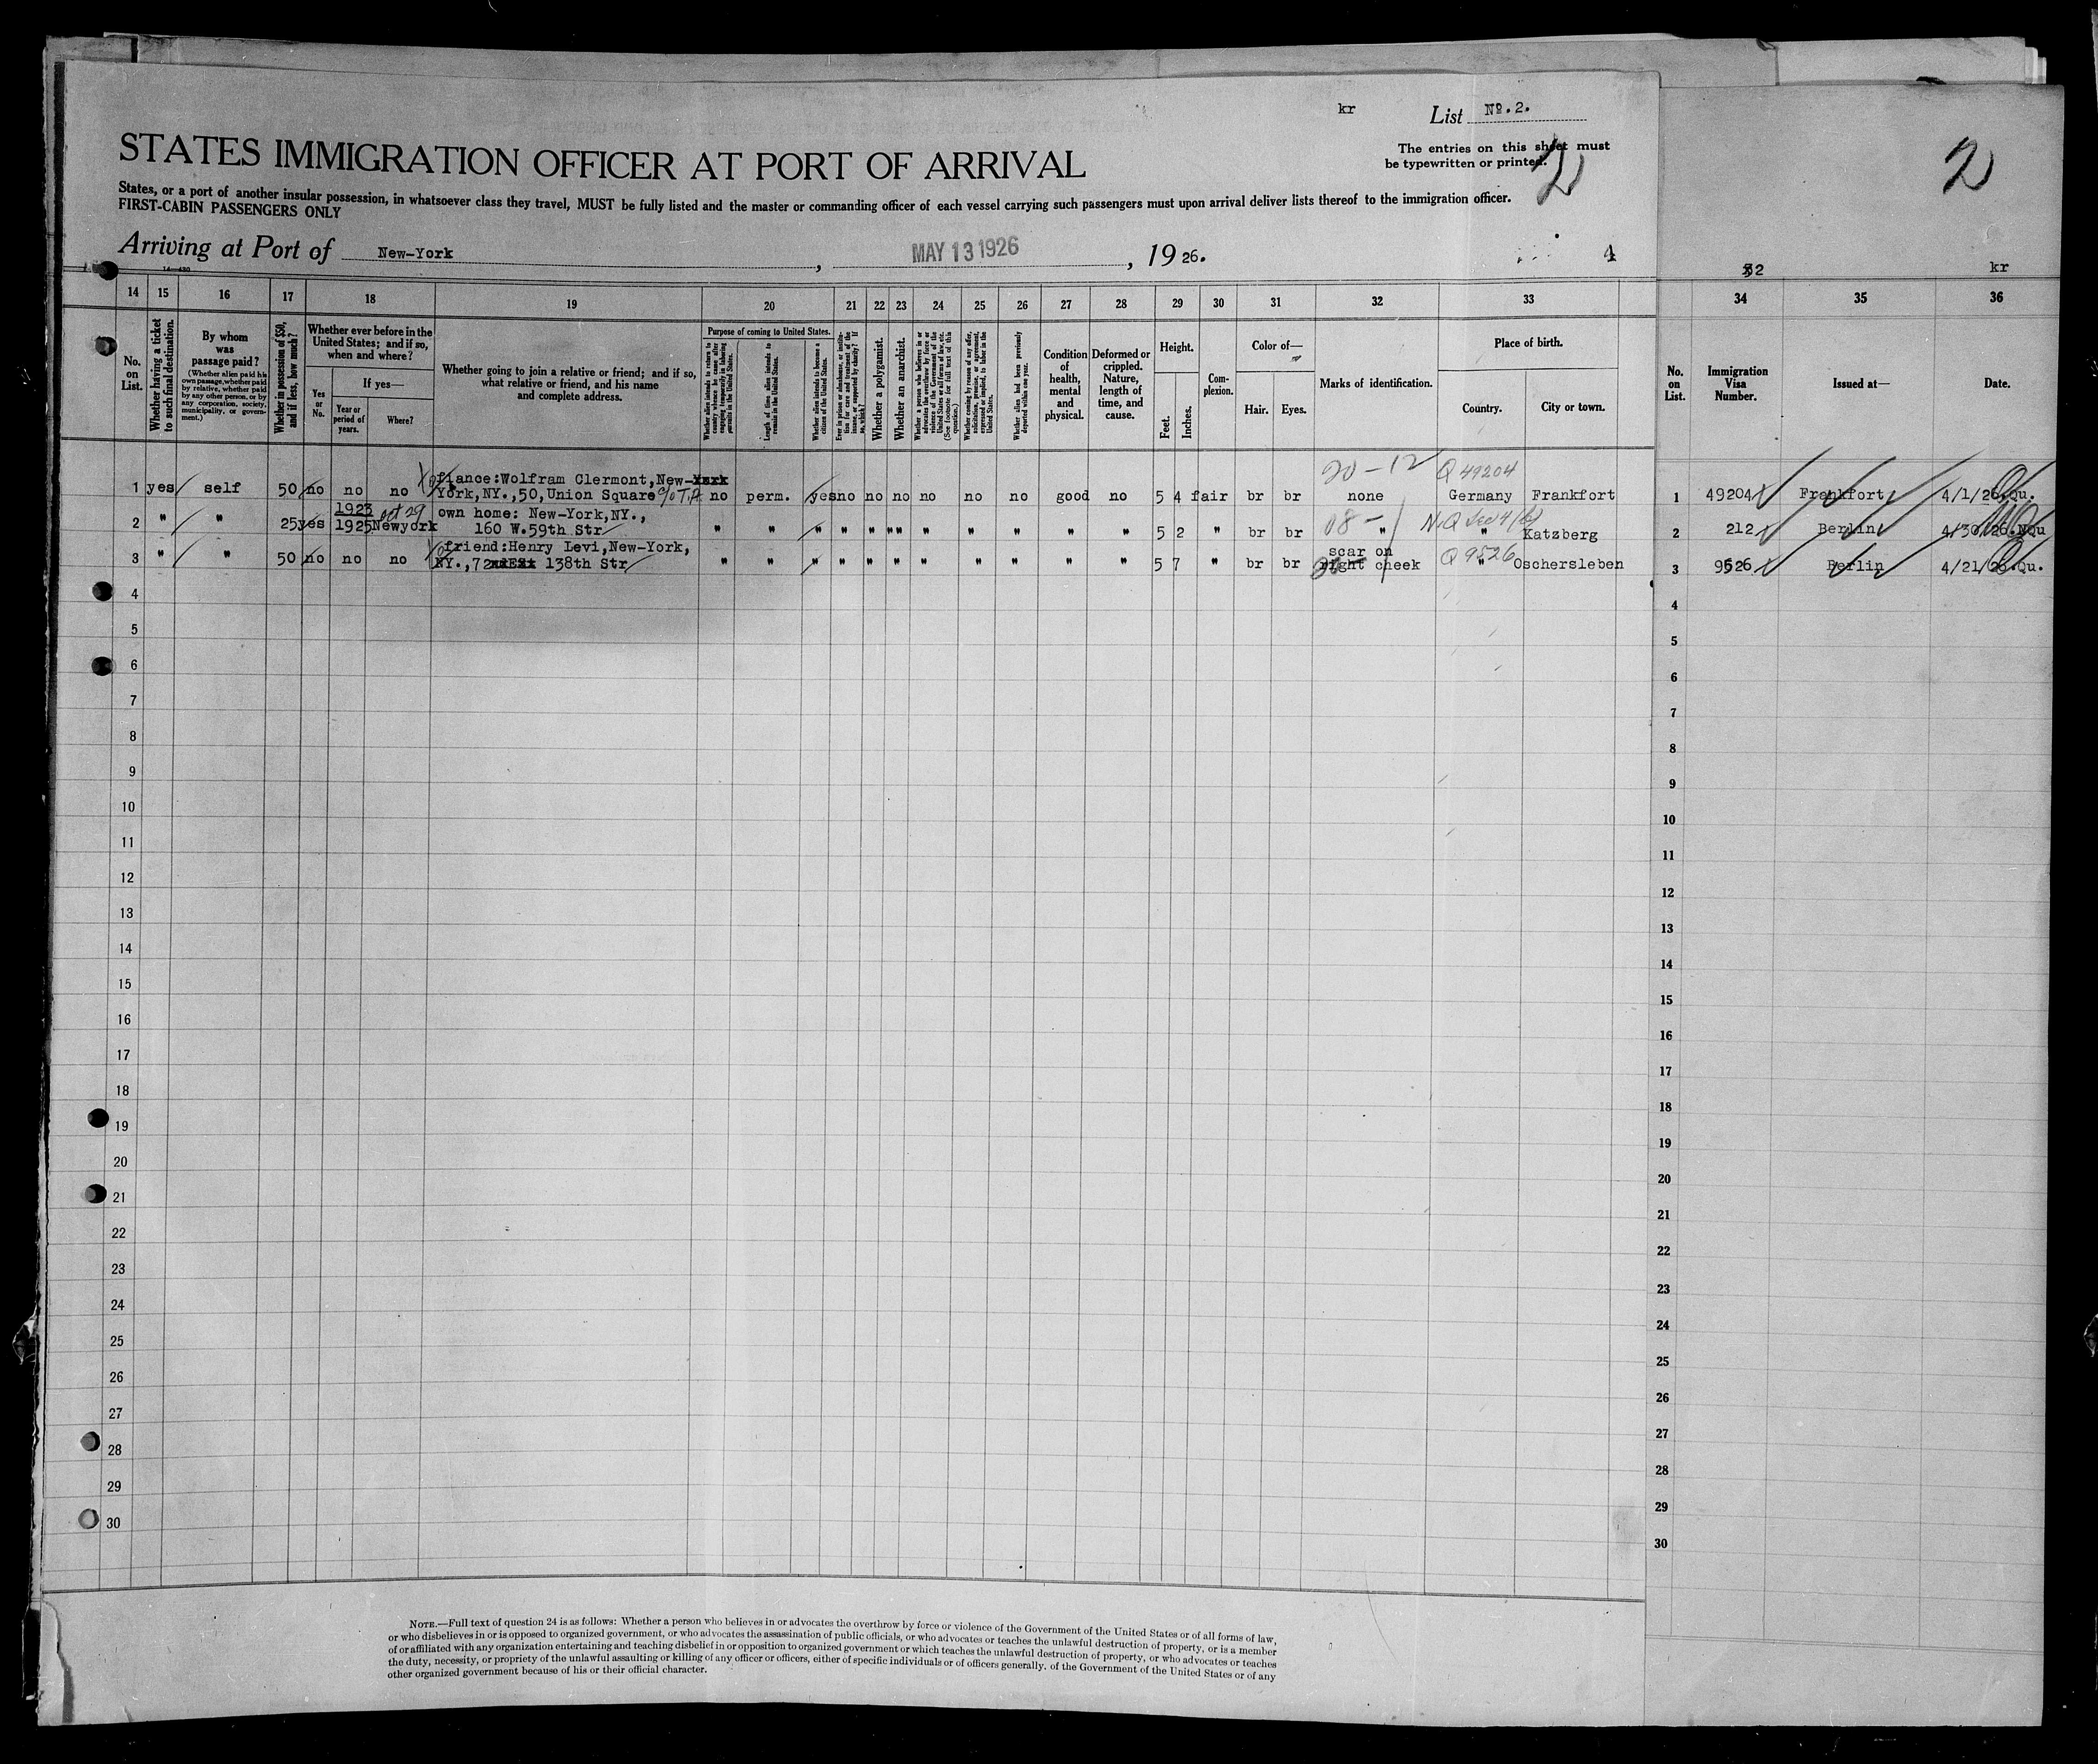 kr
List Nº.2.
The entries on this sheet must
be typewritten or printed.
2
2
STATES IMMIGRATION OFFICER AT PORT OF ARRIVAL
States, or a port of another insular possession, in whatsoever class they travel, MUST be fully listed and the master or commanding officer of each vessel carrying such passengers must upon arrival deliver lists thereof to the immigration officer.
FIRST-CABIN PASSENGERS ONLY
Arriving at Port of New-York, MAY 13 1926, 19 26.
4
32 kr
14 15 16 17 18 19 20 21 22 23 24 25 26 27 28 29 30 31 32 33 34 35 36
No. on List.
Whether having a ticket to such final destination.
By whom was passage paid?
(Whether alien paid his own passage, whether paid by relative, whether paid by any other person, or by any corporation, society, municipality, or government.)
Whether in possession of $50, and if less, how much?
Whether ever before in the United States; and if so, when and where?
Yes or No.
If yes—
Year or period of years.
Where?
Whether going to join a relative or friend; and if so, what relative or friend, and his name and complete address.
Purpose of coming to United States.
Whether alien intends to return to country whence he came after engaging temporarily in laboring pursuits in the United States.
Length of time alien intends to remain in the United States.
Whether alien intends to become a citizen of the United States.
Ever in prison or almshouse, or institution for care and treatment of the insane, or supported by charity? If so, which?
Whether a polygamist.
Whether an anarchist.
Whether a person who believes in or advocates the overthrow by force or violence of the Government of the United States or all forms of law, etc. (See footnote for full text of this question.)
Whether coming by reason of any offer, solicitation, promise, or agreement, expressed or implied, to labor in the United States.
Whether alien had been previously deported within one year.
Condition of health, mental and physical.
Deformed or crippled. Nature, length of time, and cause.
Height.
Feet.
Inches.
Complexion.
Color of—
Hair.
Eyes.
Marks of identification.
Place of birth.
Country.
City or town.
No. on List.
Immigration Visa Number.
Issued at—
Date.
20-12 Q 49204
fiance:Wolfram Clermont,New-York
1 yes self 50 no no no York,NY.,50,Union Square no perm. yes no no no no no no good no 5 4 fair br br none Germany Frankfort 1 49204 Frankfort 4/1/26.Qu.
1923 oct 29 own home: New-York,NY.,
2 " " 25 yes 1925 Newyork 160 W.59th Str " " " " " " " " " " " 5 2 " br br 08- " " Katzberg 2 212 Berlin 4/30/26.NQu
friend:Henry Levi,New-York, scar on Q 9526
3 " " 50 no no no NY.,72 138th Str " " " " " " " " " " " 5 7 " br br right cheek " Oschersleben 3 9526 Berlin 4/21/26.Qu.
4 4
5 5
6 6
7 7
8 8
9 9
10 10
11 11
12 12
13 13
14 14
15 15
16 16
17 17
18 18
19 19
20 20
21 21
22 22
23 23
24 24
25 25
26 26
27 27
28 28
29 29
30 30
NOTE.—Full text of question 24 is as follows: Whether a person who believes in or advocates the overthrow by force or violence of the Government of the United States or of all forms of law,
or who disbelieves in or is opposed to organized government, or who advocates the assassination of public officials, or who advocates or teaches the unlawful destruction of property, or is a member
of or affiliated with any organization entertaining and teaching disbelief in or opposition to organized government or which teaches the unlawful destruction of property, or who advocates or teaches
the duty, necessity, or propriety of the unlawful assaulting or killing of any officer or officers, either of specific individuals or of officers generally, of the Government of the United States or of any
other organized government because of his or their official character.